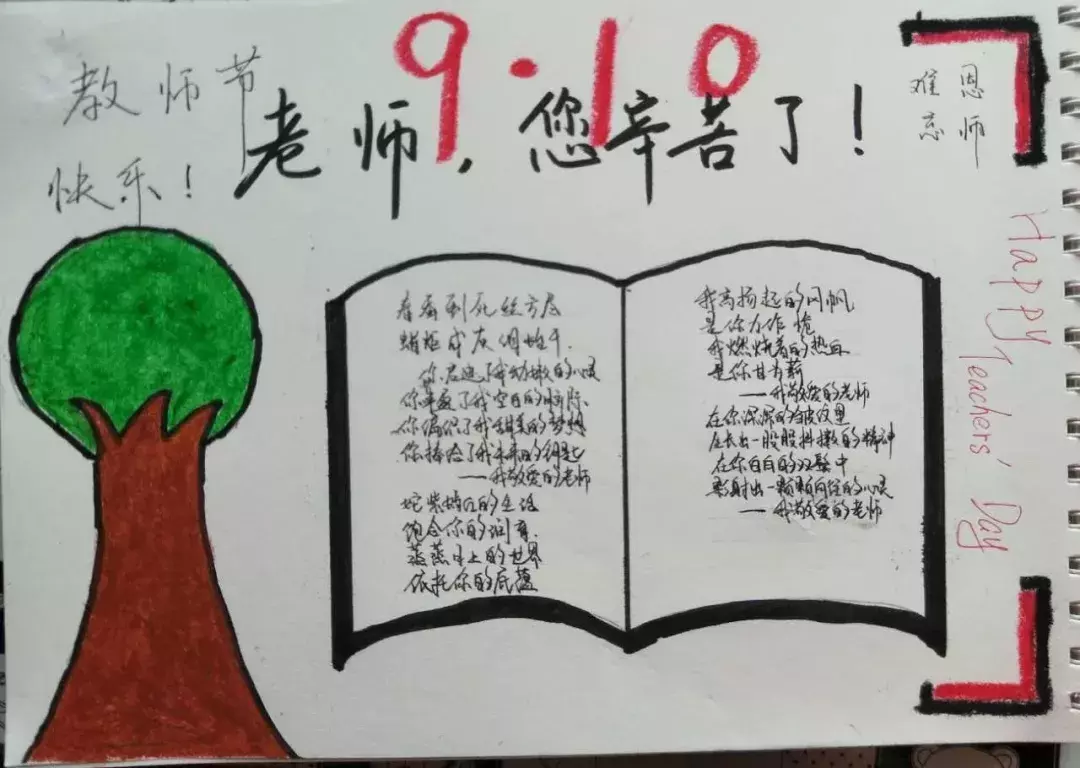 9·10
教师节
快乐！
老师，您辛苦了！
恩师
难忘
Happy Teachers' Day
春蚕到死丝方尽
蜡炬成灰泪始干.
你启迪了我幼嫩的心灵
你丰盈了我空白的脑际、
你编织了我甜美的梦想
你捧给了我未来的钥匙
——我敬爱的老师
姹紫嫣红的生活
饱含你的润育.
蒸蒸日上的世界
依托你的底蕴
我高扬起的风帆
是你为作桅
我燃烧着的热血
是你甘为薪
——我敬爱的老师
在你深深的皱纹里
生长出一股股抖擞的精神
在你白白的双鬓中
影射出一颗颗向往的心灵
——我敬爱的老师